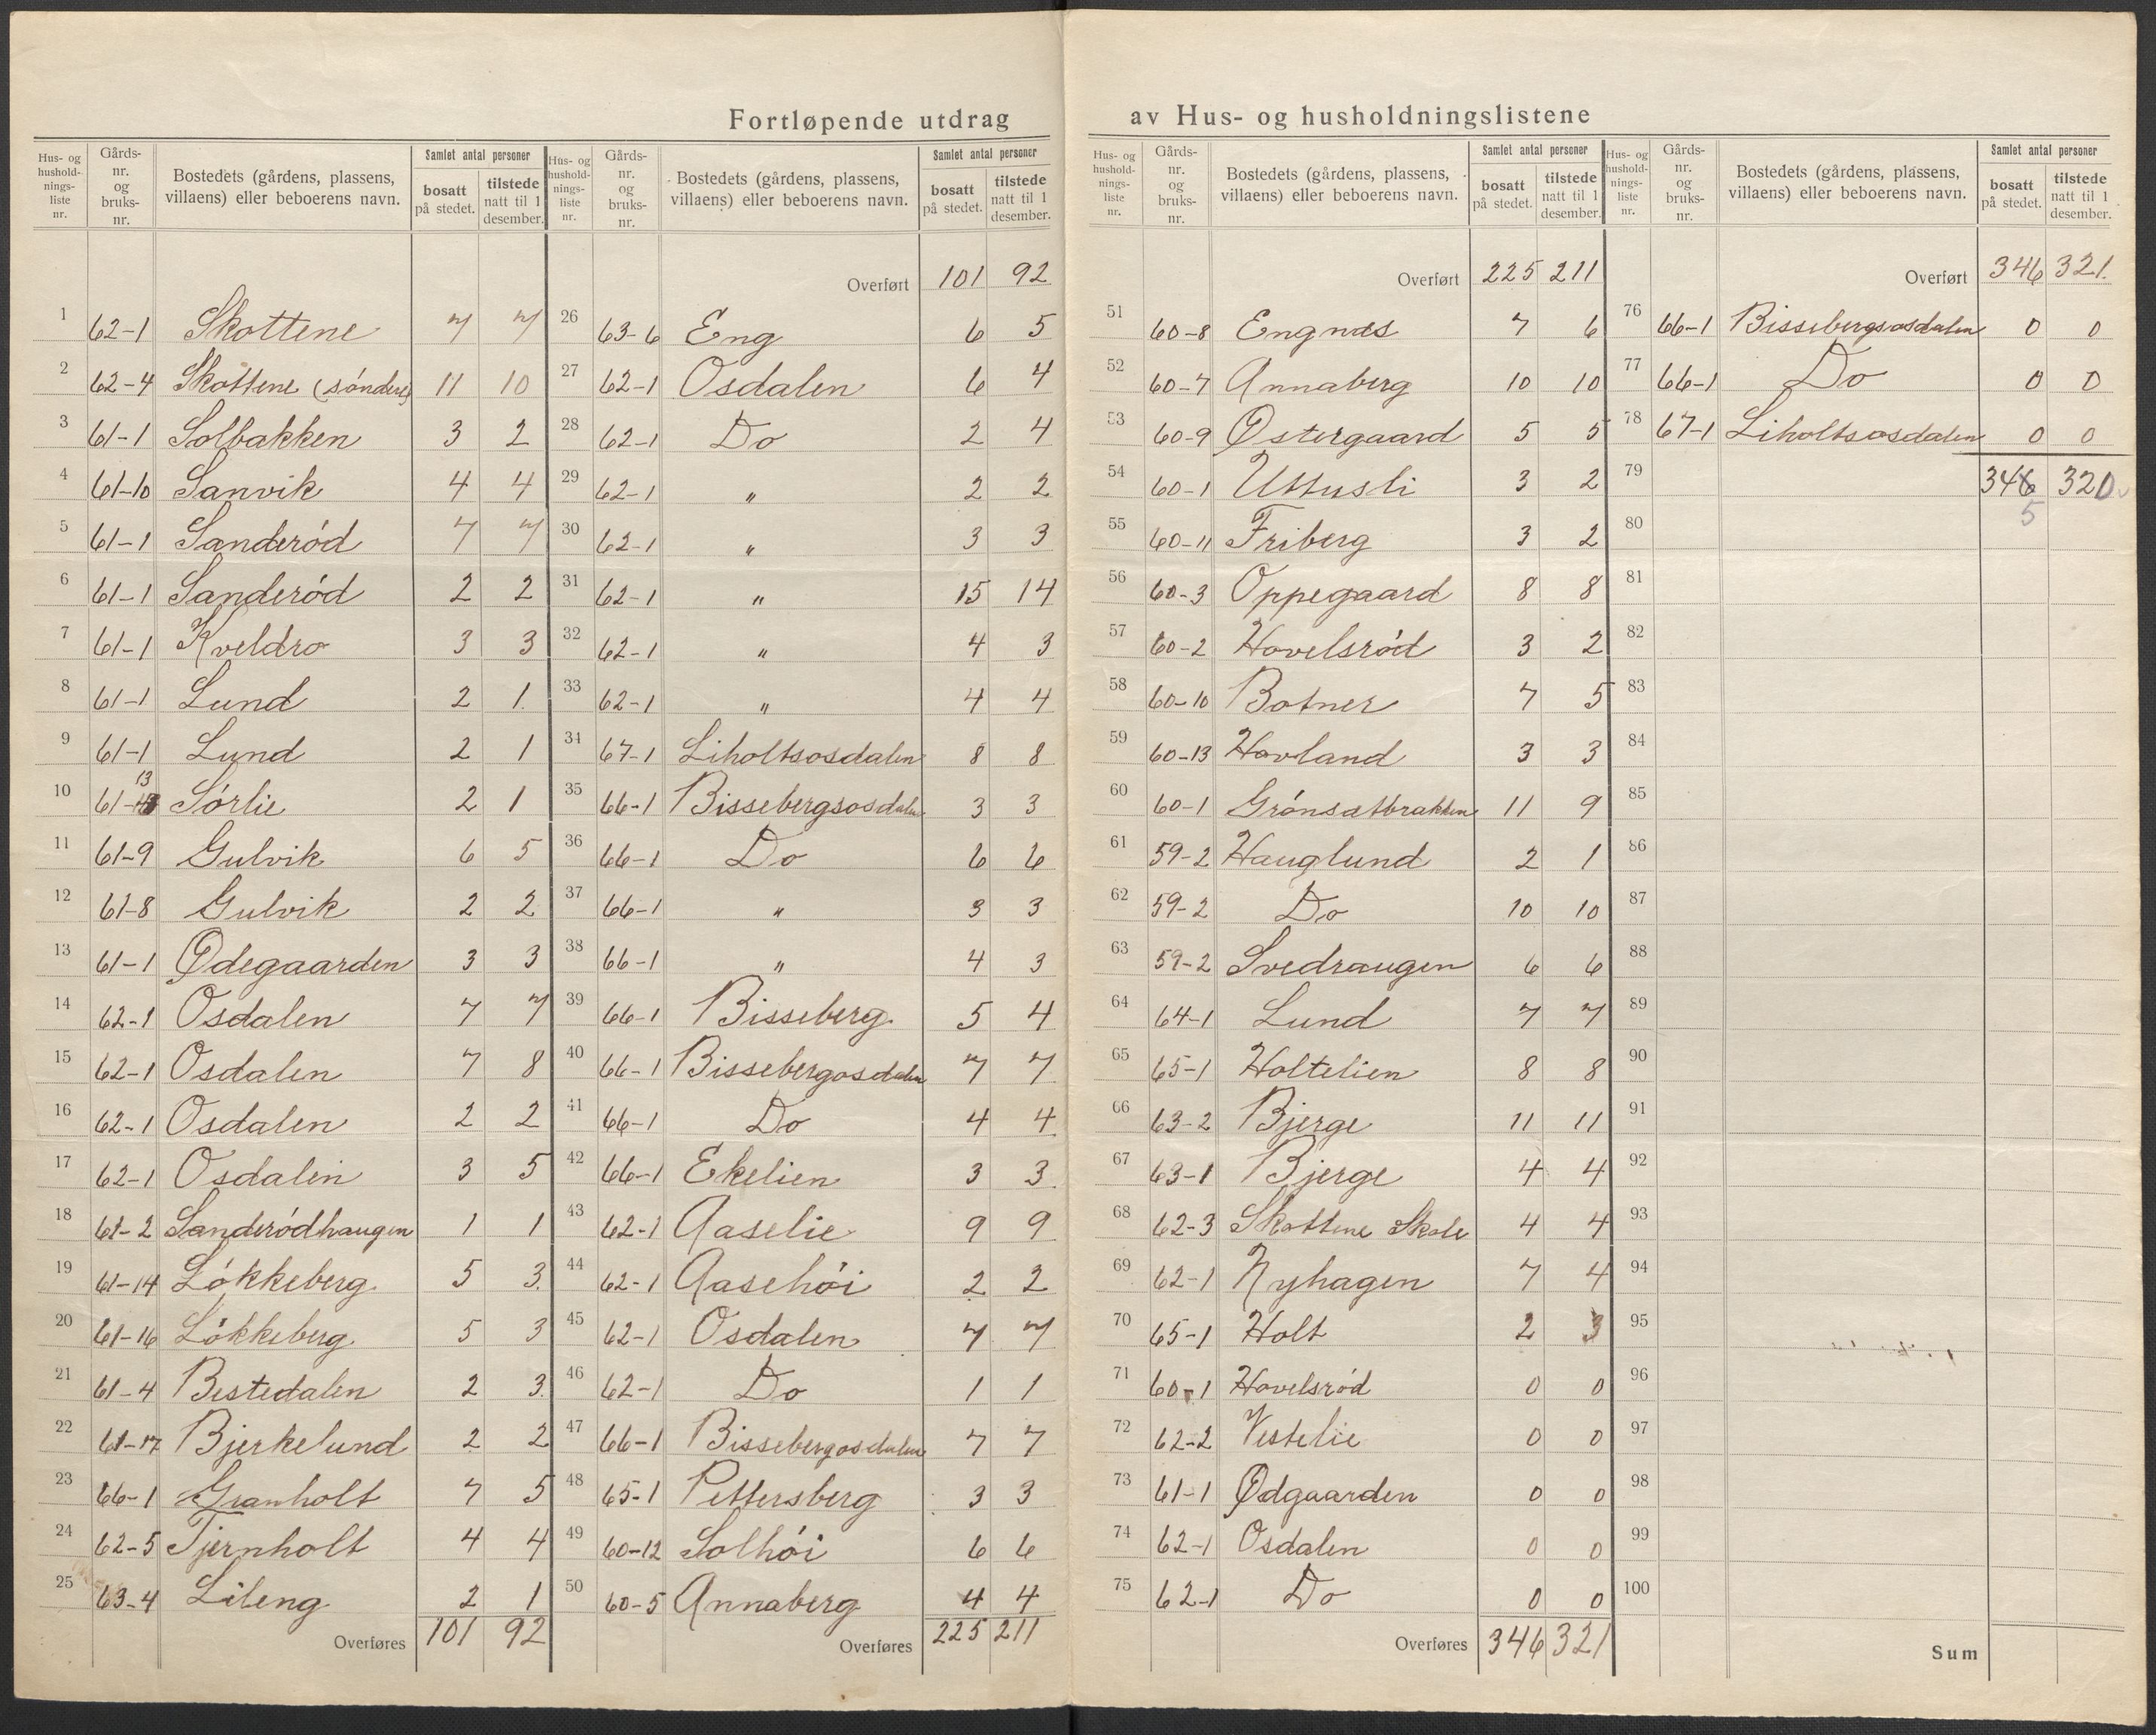 Fortløpende utdrag av Hus- og husholdningslistene
Hus- og hushold-nings-liste nr. | Gårds-nr. og bruks-nr. | Bostedets (gårdens, plassens, villaens) eller beboerens navn. | Samlet antal personer | bosatt på stedet. | tilstede natt til 1 desember.
1 62-1 Skottene 7 7
2 62-4 Skottene (söndre) 11 10
3 61-1 Solbakken 3 2
4 61-10 Sanvik 4 4
5 61-1 Sanderód 7 7
6 61-1 Sanderód 2 2
7 61-1 Kveldro 3 3
8 61-1 Lund 2 1
9 61-1 Lund 2 1
10 61-13 Sórlie 2 1
11 61-9 Gulvik 6 5
12 61-8 Gulvik 2 2
13 61-1 Ødegaarden 3 3
14 62-1 Osdalen 7 7
15 62-1 Osdalen 7 8
16 62-1 Osdalen 2 2
17 62-1 Osdalen 3 5
18 61-2 Sanderódhaugen 1 1
19 61-14 Lókkeberg 5 3
20 61-16 Lókkeberg 5 3
21 61-4 Bestedalen 2 3
22 61-17 Bjerkelund 2 2
23 66-1 Granholt 7 5
24 62-5 Tjernholt 4 4
25 63-4 Lileng 2 1
Overføres 101 92
Hus- og hushold-nings-liste nr. | Gårds-nr. og bruks-nr. | Bostedets (gårdens, plassens, villaens) eller beboerens navn. | Samlet antal personer | bosatt på stedet. | tilstede natt til 1 desember.
Overført 101 92
26 63-6 Eng 6 5
27 62-1 Osdalen 6 4
28 62-1 Do 2 4
29 62-1 " 2 2
30 62-1 " 3 3
31 62-1 " 15 14
32 62-1 " 4 3
33 62-1 " 4 4
34 67-1 Liholtsosdalen 8 8
35 66-1 Bissebergsosdalen 3 3
36 66-1 Do 6 6
37 66-1 " 3 3
38 66-1 " 4 3
39 66-1 Bisseberg 5 4
40 66-1 Bissebergosdalen 7 7
41 66-1 Do 4 4
42 66-1 Ekelien 3 3
43 62-1 Aaselie 9 9
44 62-1 Aasehöi 2 2
45 62-1 Osdalen 7 7
46 62-1 Do 1 1
47 66-1 Bissebergosdalen 7 7
48 65-1 Pettersberg 3 3
49 60-12 Solhöi 6 6
50 60-5 Annaberg 4 4
Overføres 225 211
Hus- og hushold-nings-liste nr. | Gårds-nr. og bruks-nr. | Bostedets (gårdens, plassens, villaens) eller beboerens navn. | Samlet antal personer | bosatt på stedet. | tilstede natt til 1 desember.
Overført 225 211
51 60-8 Engnæs 7 6
52 60-7 Annaberg 10 10
53 60-9 Østergaard 5 5
54 60-1 Uttusli 3 2
55 60-11 Friberg 3 2
56 60-3 Oppegaard 8 8
57 60-2 Hovelsród 3 2
58 60-10 Botner 7 5
59 60-13 Hovland 3 3
60 60-1 Grónsætbrakken 11 9
61 59-2 Hauglund 2 1
62 59-2 Do 10 10
63 59-2 Svedraugen 6 6
64 64-1 Lund 7 7
65 65-1 Holtelien 8 8
66 63-2 Bjerge 11 11
67 63-1 Bjerge 4 4
68 62-3 Skottene Skole 4 4
69 62-1 Nyhagen 7 4
70 65-1 Holt 2 3
71 60-1 Hovelsród 0 0
72 62-2 Vestelie 0 0
73 61-1 Ødgaarden 0 0
74 62-1 Osdalen 0 0
75 62-1 Do 0 0
Overføres 346 321
Hus- og hushold-nings-liste nr. | Gårds-nr. og bruks-nr. | Bostedets (gårdens, plassens, villaens) eller beboerens navn. | Samlet antal personer | bosatt på stedet. | tilstede natt til 1 desember.
Overført 346 321
76 66-1 Bissebergsosdalen 0 0
77 66-1 Do 0 0
78 67-1 Liholtsosdalen 0 0
79 346 320
80 5
81
82
83
84
85
86
87
88
89
90
91
92
93
94
95
96
97
98
99
100
Sum